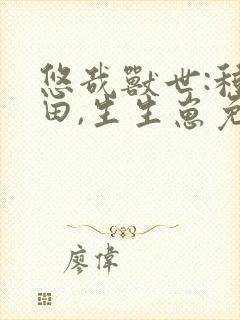 悠哉獸世:種
田,生生崽兔
廖偉